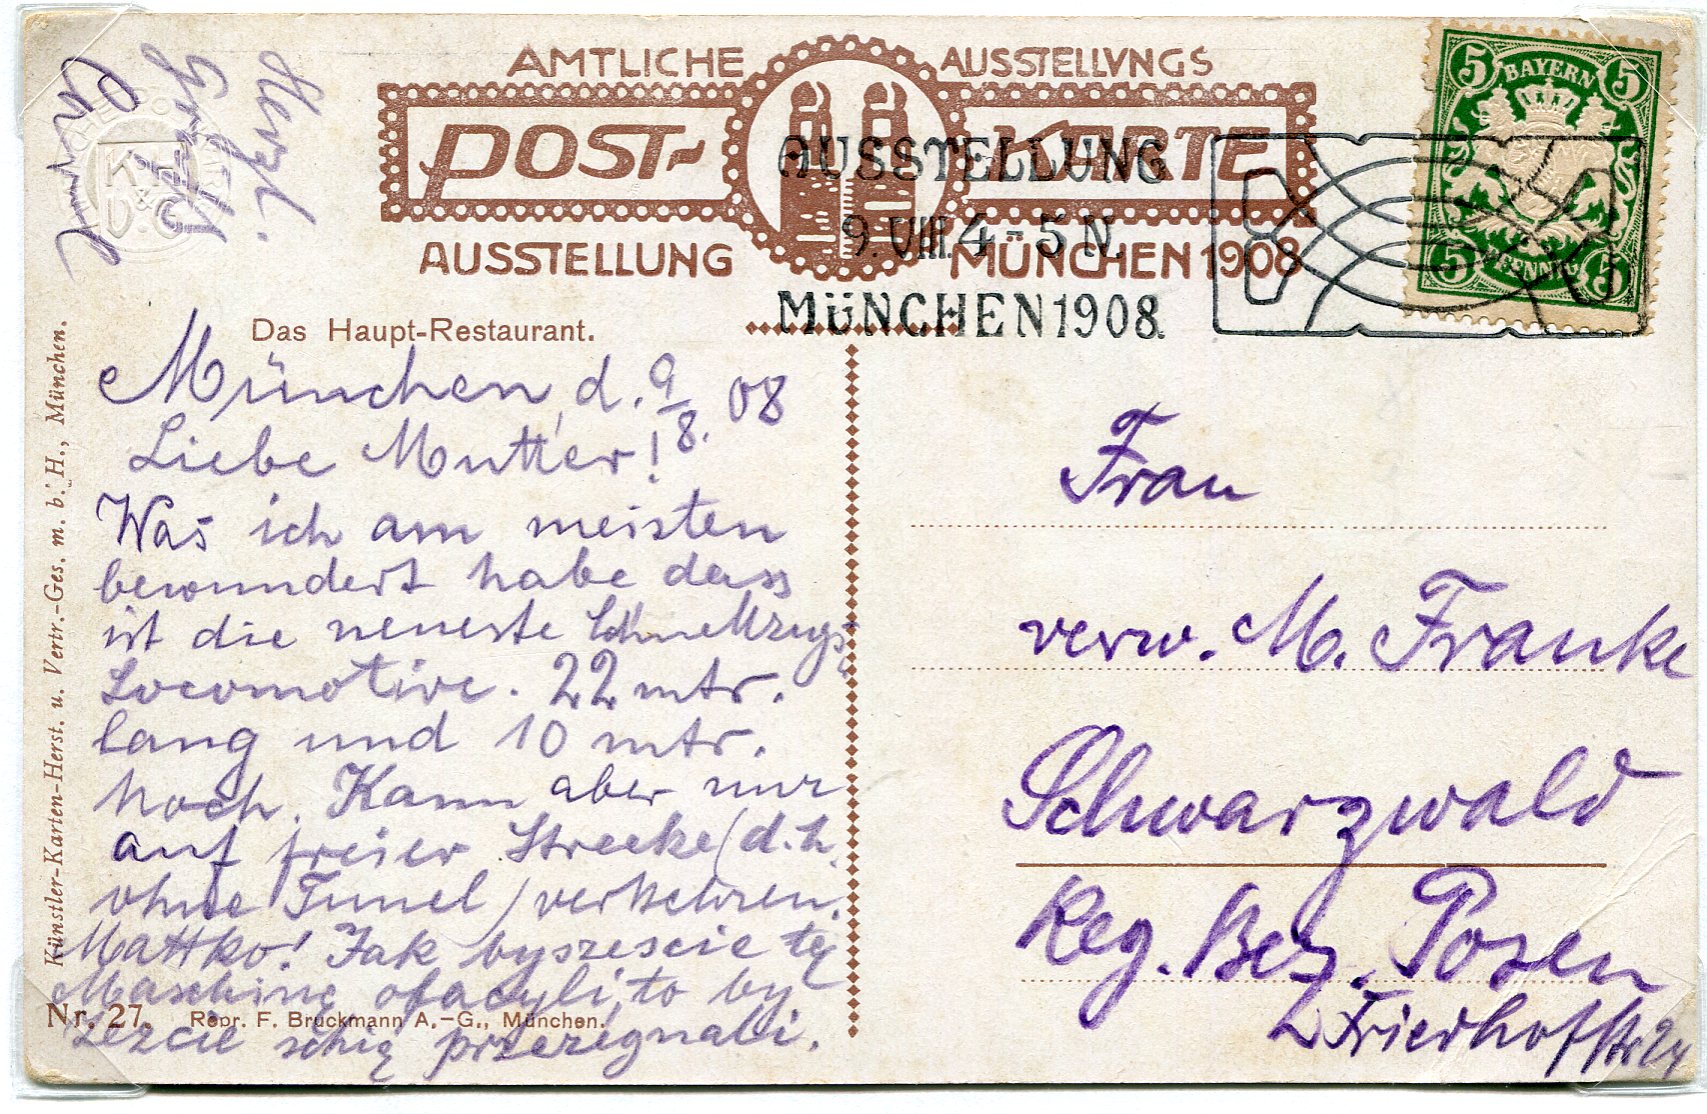 AMTLICHE AUSSTELLVNGS
POST- KARTE
AUSSTELLUNG MÜNCHEN 1908
AUSSTELLUNG
9.VIII.4-5N.
MÜNCHEN1908.
5 BAYERN 5
5 PFENNIG 5
Herzl.
Gruß
KH
V.&C
Das Haupt-Restaurant.
München, d. 9/8. 08
Liebe Mutter!
Was ich am meisten
bewundert habe dass
ist die neueste Schnellzugs
Locomotive. 22 mtr.
lang und 10 mtr.
hoch. Kann aber nur
auf freier Strecke (d.h.
ohne Tunel) verkehren.
Mattko! Jak byszescie tę
Maschinę obacyli, to by
Lezcie schię przezegnali.
Frau
verw. M. Franke
Schwarzwald
Reg. Bez. Posen
Friedhofstr 24
Künstler-Karten-Herst. u. Vertr.-Ges. m. b. H., München.
Nr. 27. Repr. F. Bruckmann A.-G., München.